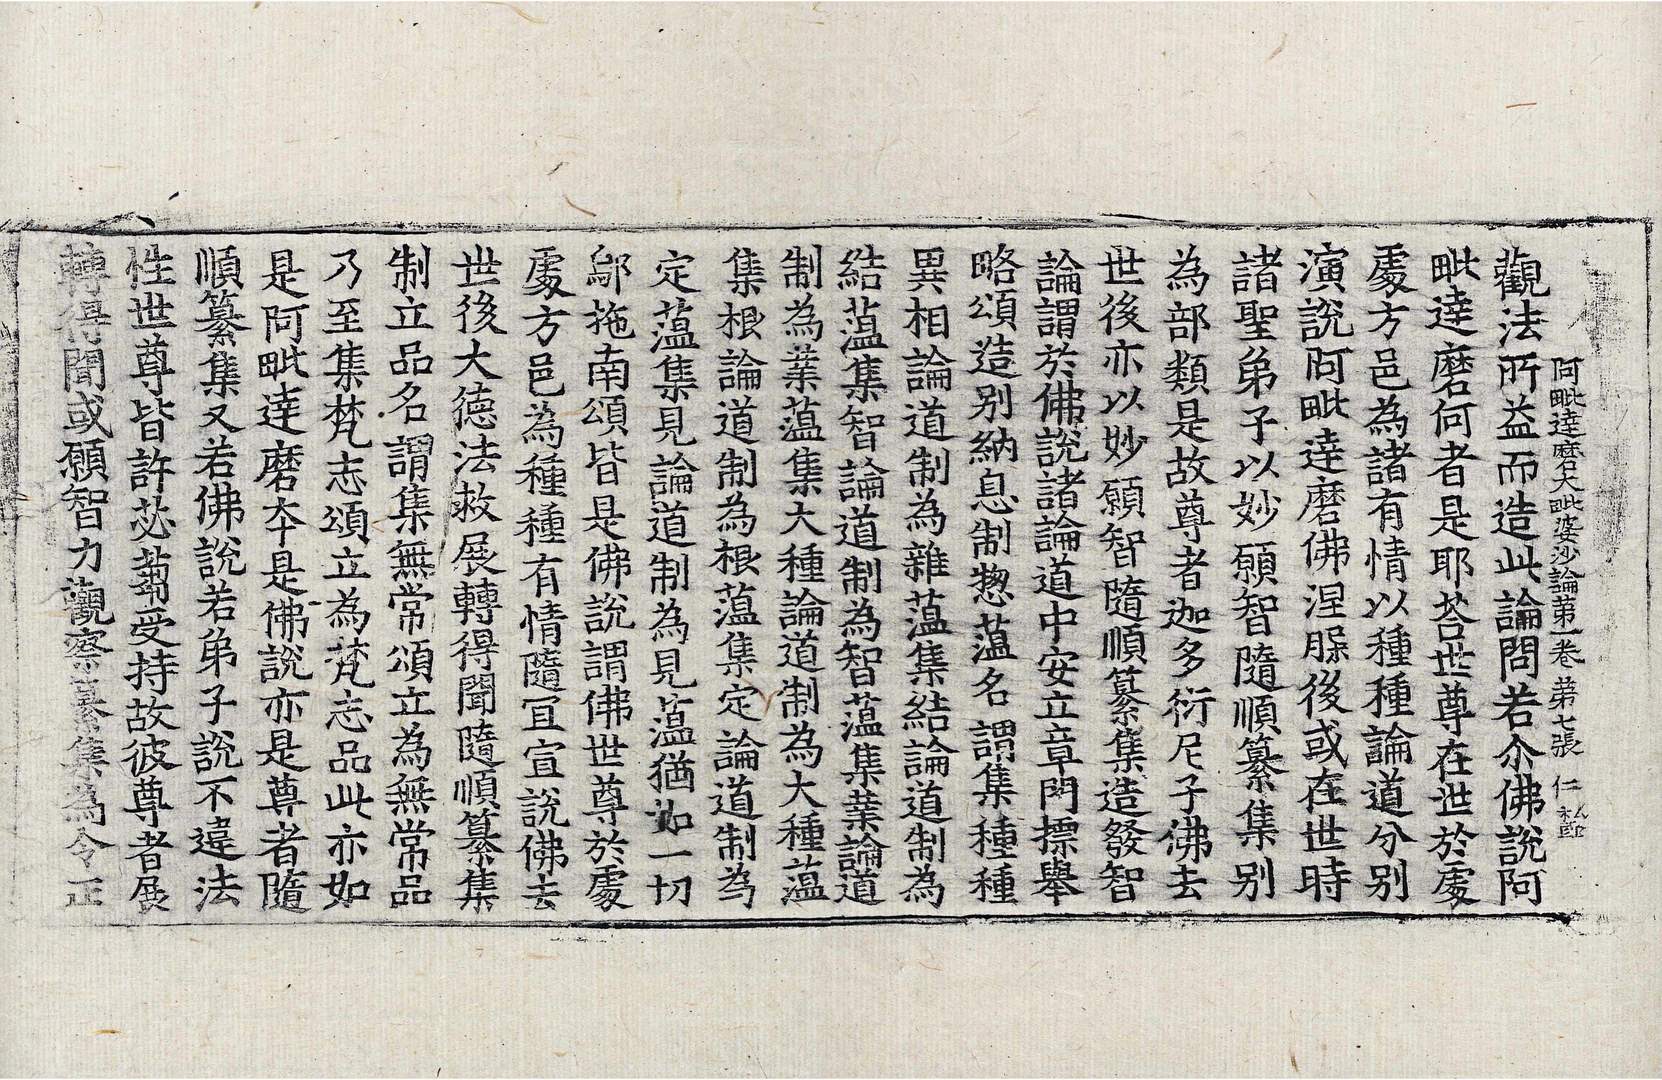 阿毗達磨大毗婆沙論第一卷 第七張 仁
觀法所益而造此論問若尒佛說阿
毗達磨何者是耶荅世尊在世於處
處方邑為諸有情以種種論道分別
演說阿毗達磨佛涅槃後或在世時
諸聖弟子以妙願智隨順纂集別
為部類是故尊者迦多衍尼子佛去
世後亦以妙願智隨順纂集造發智
論謂於佛說諸論道中安立章門摽舉
略頌造別納息制惣蕰名謂集種種
異相論道制為雜蕰集結論道制為
結蕰集智論道制為智蕰集業論道
制為業蕰集大種論道制為大種蕰
集根論道制為根蕰集定論道制為
定蕰集見論道制為見蕰猶如一切
鄔拖南頌皆是佛說謂佛世尊於處
處方邑為種種有情隨冝宣說佛去
世後大德法救展轉得聞隨順纂集
制立品名謂集無常頌立為無常品
乃至集梵志頌立為梵志品此亦如
是阿毗達磨夲是佛說亦是尊者隨
順纂集又若佛說若弟子說不違法
性世尊皆許苾蒭受持故彼尊者展
轉得聞或願智力觀察纂集為令正